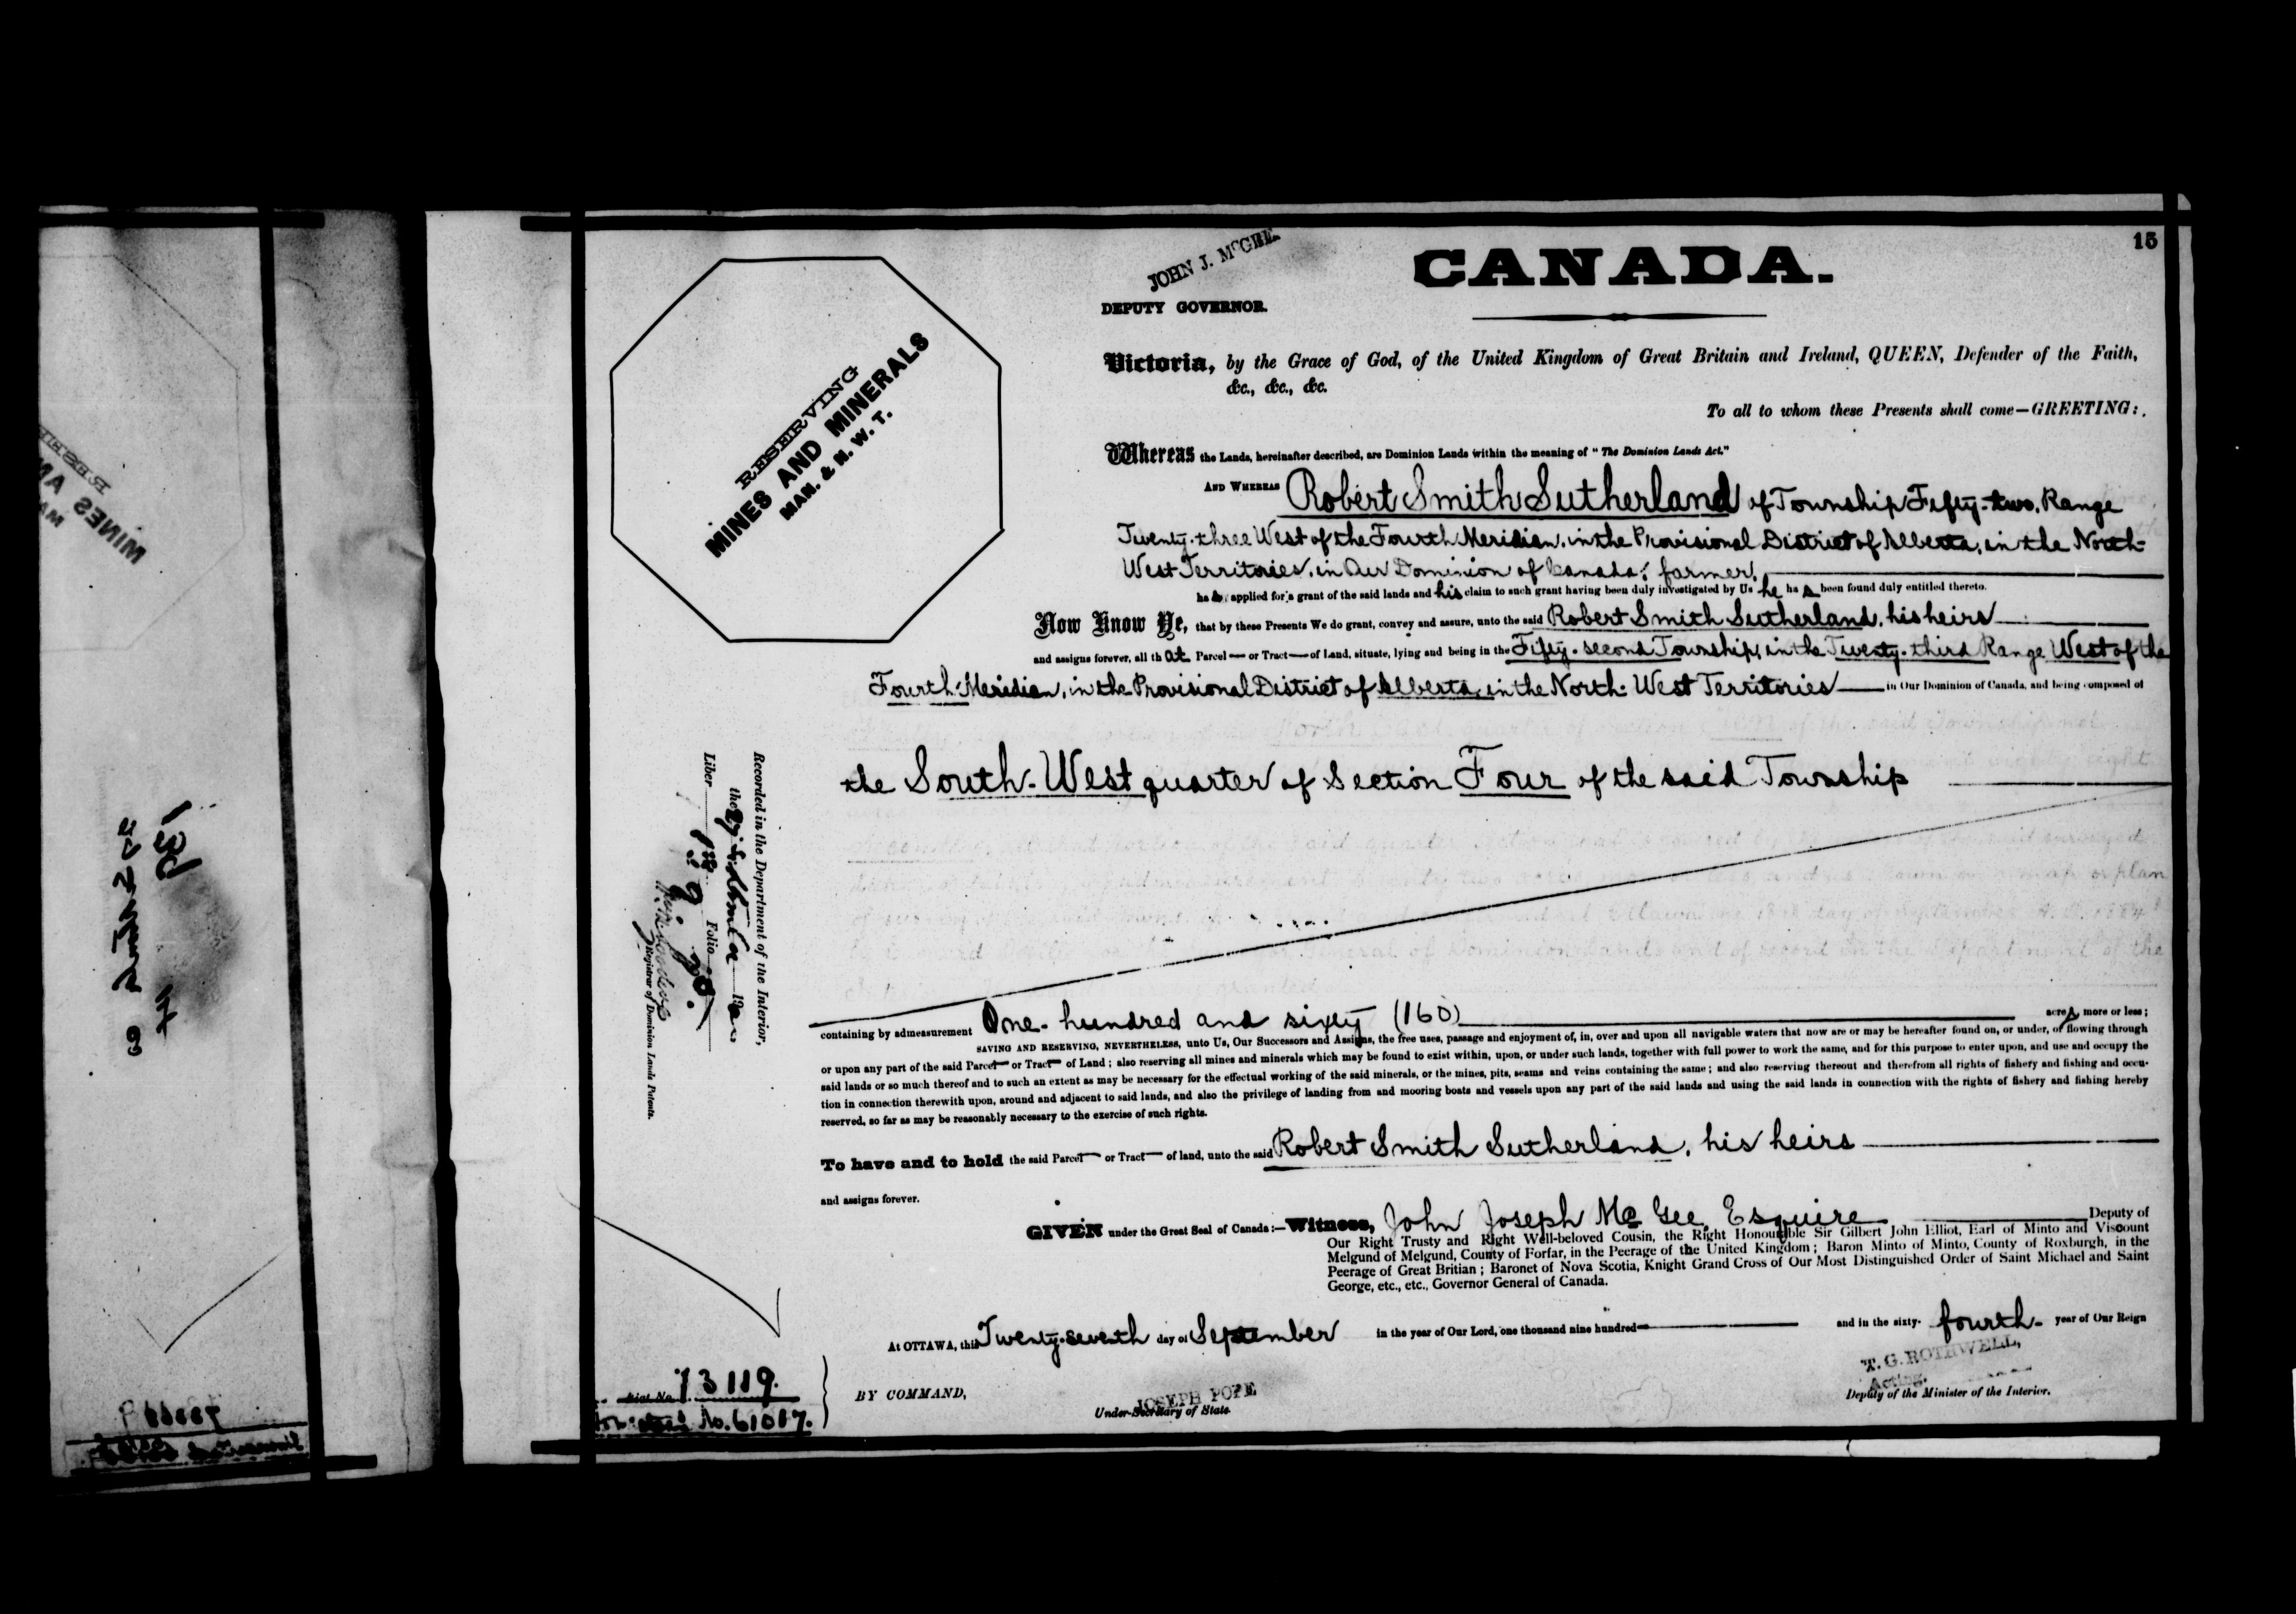 15
JOHN J. McGEE
DEPUTY GOVERNOR.
CANADA.
RESERVING
MINES AND MINERALS
MAN. & N. W. T.
Victoria, by the Grace of God, of the United Kingdom of Great Britain and Ireland, QUEEN, Defender of the Faith,
&c., &c., &c.
To all to whom these Presents shall come—GREETING:
Whereas the Lands, hereinafter described, are Dominion Lands within the meaning of "The Dominion Lands Act."
AND WHEREAS Robert Smith Sutherland of Township Fifty-two, Range
Twenty-three West of the Fourth Meridian, in the Provisional District of Alberta, in the North-
West Territories, in Our Dominion of Canada, farmer,
has applied for a grant of the said lands and his claim to such grant having been duly investigated by Us he has been found duly entitled thereto.
Now Know Ye, that by these Presents We do grant, convey and assure, unto the said Robert Smith Sutherland, his heirs
and assigns forever, all that Parcel — or Tract — of Land, situate, lying and being in the Fifty-second Township, in the Twenty-third Range West of the
Fourth Meridian, in the Provisional District of Alberta, in the North-West Territories — in Our Dominion of Canada, and being composed of
the South-West quarter of Section Four of the said Township
Recorded in the Department of the Interior,
the
Liber Folio
Registrar of Dominion Lands Patents.
containing by admeasurement One hundred and sixty (160) acres, more or less;
SAVING AND RESERVING, NEVERTHELESS, unto Us, Our Successors and Assigns, the free uses, passage and enjoyment of, in, over and upon all navigable waters that now are or may be hereafter found on, or under, or flowing through
or upon any part of the said Parcel — or Tract — of Land; also reserving all mines and minerals which may be found to exist within, upon, or under such lands, together with full power to work the same, and for this purpose to enter upon, and use and occupy the
said lands or so much thereof and to such an extent as may be necessary for the effectual working of the said minerals, or the mines, pits, seams and veins containing the same; and also reserving thereout and therefrom all rights of fishery and fishing and occu-
tion in connection therewith upon, around and adjacent to said lands, and also the privilege of landing from and mooring boats and vessels upon any part of the said lands and using the said lands in connection with the rights of fishery and fishing hereby
reserved, so far as may be reasonably necessary to the exercise of such rights.
To have and to hold the said Parcel — or Tract — of land, unto the said Robert Smith Sutherland, his heirs
and assigns forever.
GIVEN under the Great Seal of Canada:—Witness, John Joseph McGee, Esquire Deputy of
Our Right Trusty and Right Well-beloved Cousin, the Right Honourable Sir Gilbert John Elliot, Earl of Minto and Viscount
Melgund of Melgund, County of Forfar, in the Peerage of the United Kingdom; Baron Minto of Minto, County of Roxburgh, in the
Peerage of Great Britian; Baronet of Nova Scotia, Knight Grand Cross of Our Most Distinguished Order of Saint Michael and Saint
George, etc., etc., Governor General of Canada.
At OTTAWA, this Twenty-seventh day of September in the year of Our Lord, one thousand nine hundred — and in the sixty-fourth year of Our Reign
T. G. ROTHWELL,
Acting.
Deputy of the Minister of the Interior.
BY COMMAND,
JOSEPH POPE
Under-Secretary of State.
73119.
No. 61017.